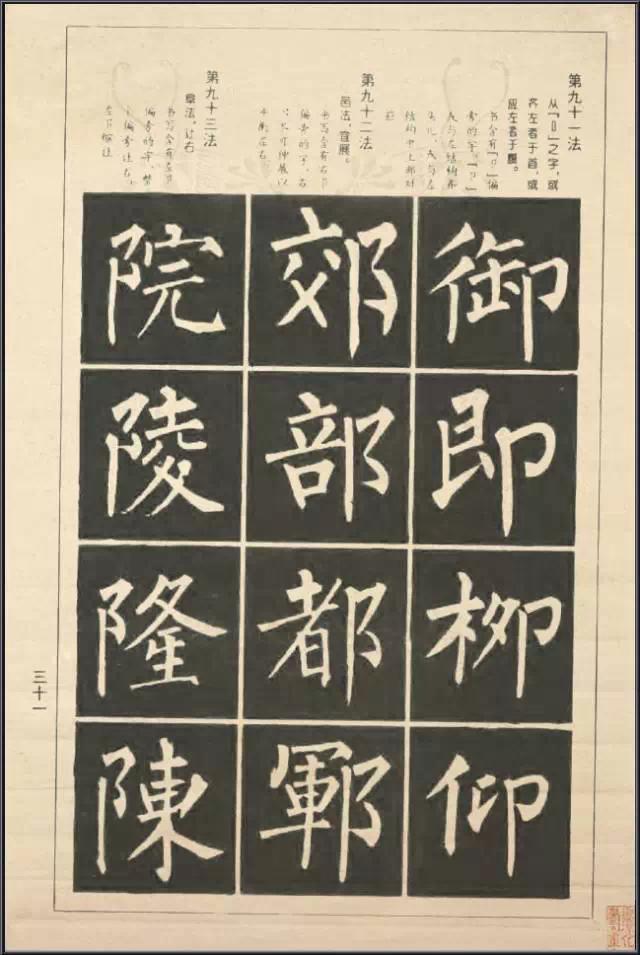 第九十一法
从「卩」之字，或
齐左者于首，或
应左者于腰。
书含有「卩」偏
旁的字，「卩」
或与左结构齐
头儿，或与左
结构中上部对
应
御
即
柳
仰
第九十二法
邑法，宜展。
书写含有右耳
偏旁的字，右
可伸展以
平衡左右
郊
部
都
鄆
第九十三法
阜法，让右
书写含有左耳
偏旁的字，
偏旁让右，
院
陵
隆
陳
三十一